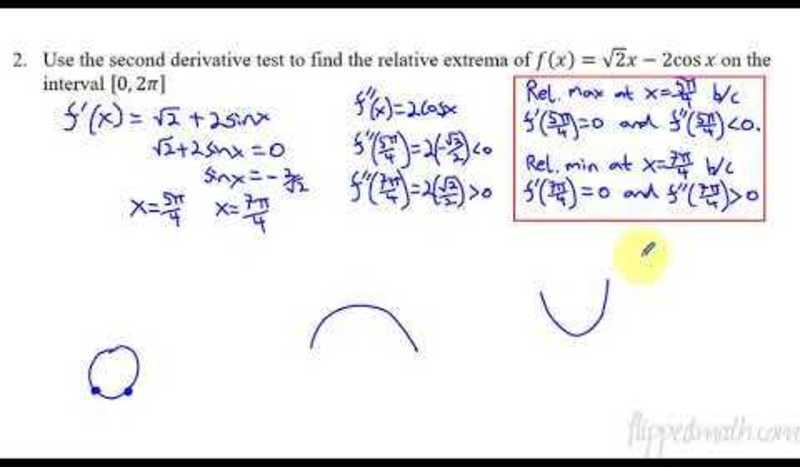 2. Use the second derivative test to find the relative extrema of f(x) = √2x − 2cos x on the
interval [0, 2π]
f'(x) = √2 + 2sinx
√2+2sinx = 0
sinx = - 2/√2
x = 5π/4 x = 7π/4
f''(x) = 2cosx
f''(5π/4) = 2(-√2/2) < 0
f''(7π/4) = 2(√2/2) > 0
Rel. max at x = 5π/4 b/c
f'(5π/4) = 0 and f''(5π/4) < 0.
Rel. min at x = 7π/4 b/c
f'(7π/4) = 0 and f''(7π/4) > 0
flippedmath.com